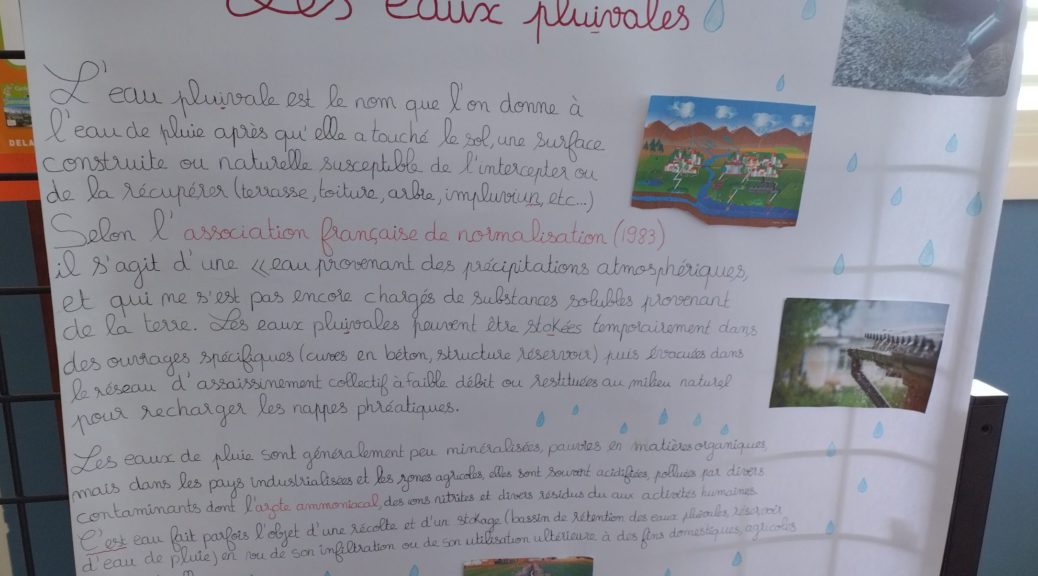 Les eaux pluivales
DELA
L'eau pluivale est le nom que l'on donne à
l'eau de pluie après qu'elle a touché le sol, une surface
construite ou naturelle susceptible de l'intercepter ou
de la récupérer (terrasse, toiture, arbre, impluvoiun, etc...)
Selon l'association française de normalisation (1983)
il s'agit d'une «eau provenant des précipitations atmosphériques,
et qui me s'est pas encore chargés de substances solubles provenant
de la terre. Les eaux pluivales peuvent être stokées temporairement dans
des ouvrages spécifiques (cuves en béton, structure réservoir) puis évacuées dans
le réseau d'assaissinement collectif à faible débit ou restituées au milieu naturel
pour recharger les nappes phréatiques.
Les eaux de pluie sont généralement peu minéralisées, pauvres en matières organiques,
mais dans les pays industrialisées et les zones agricoles, elles sont souvent acidifiées, polluées par divers
contaminants dont l'azote ammoniacal, des ions nitrites et divers résidus du aux activités humaines.
C'est eau fait parfois l'objet d'une récolte et d'un stokage (bassin de rétention des eaux pluviales, réservoir
d'eau de pluie) en vu de son infiltration ou de son utilisation ultérieure à des fins domestiques, agricoles